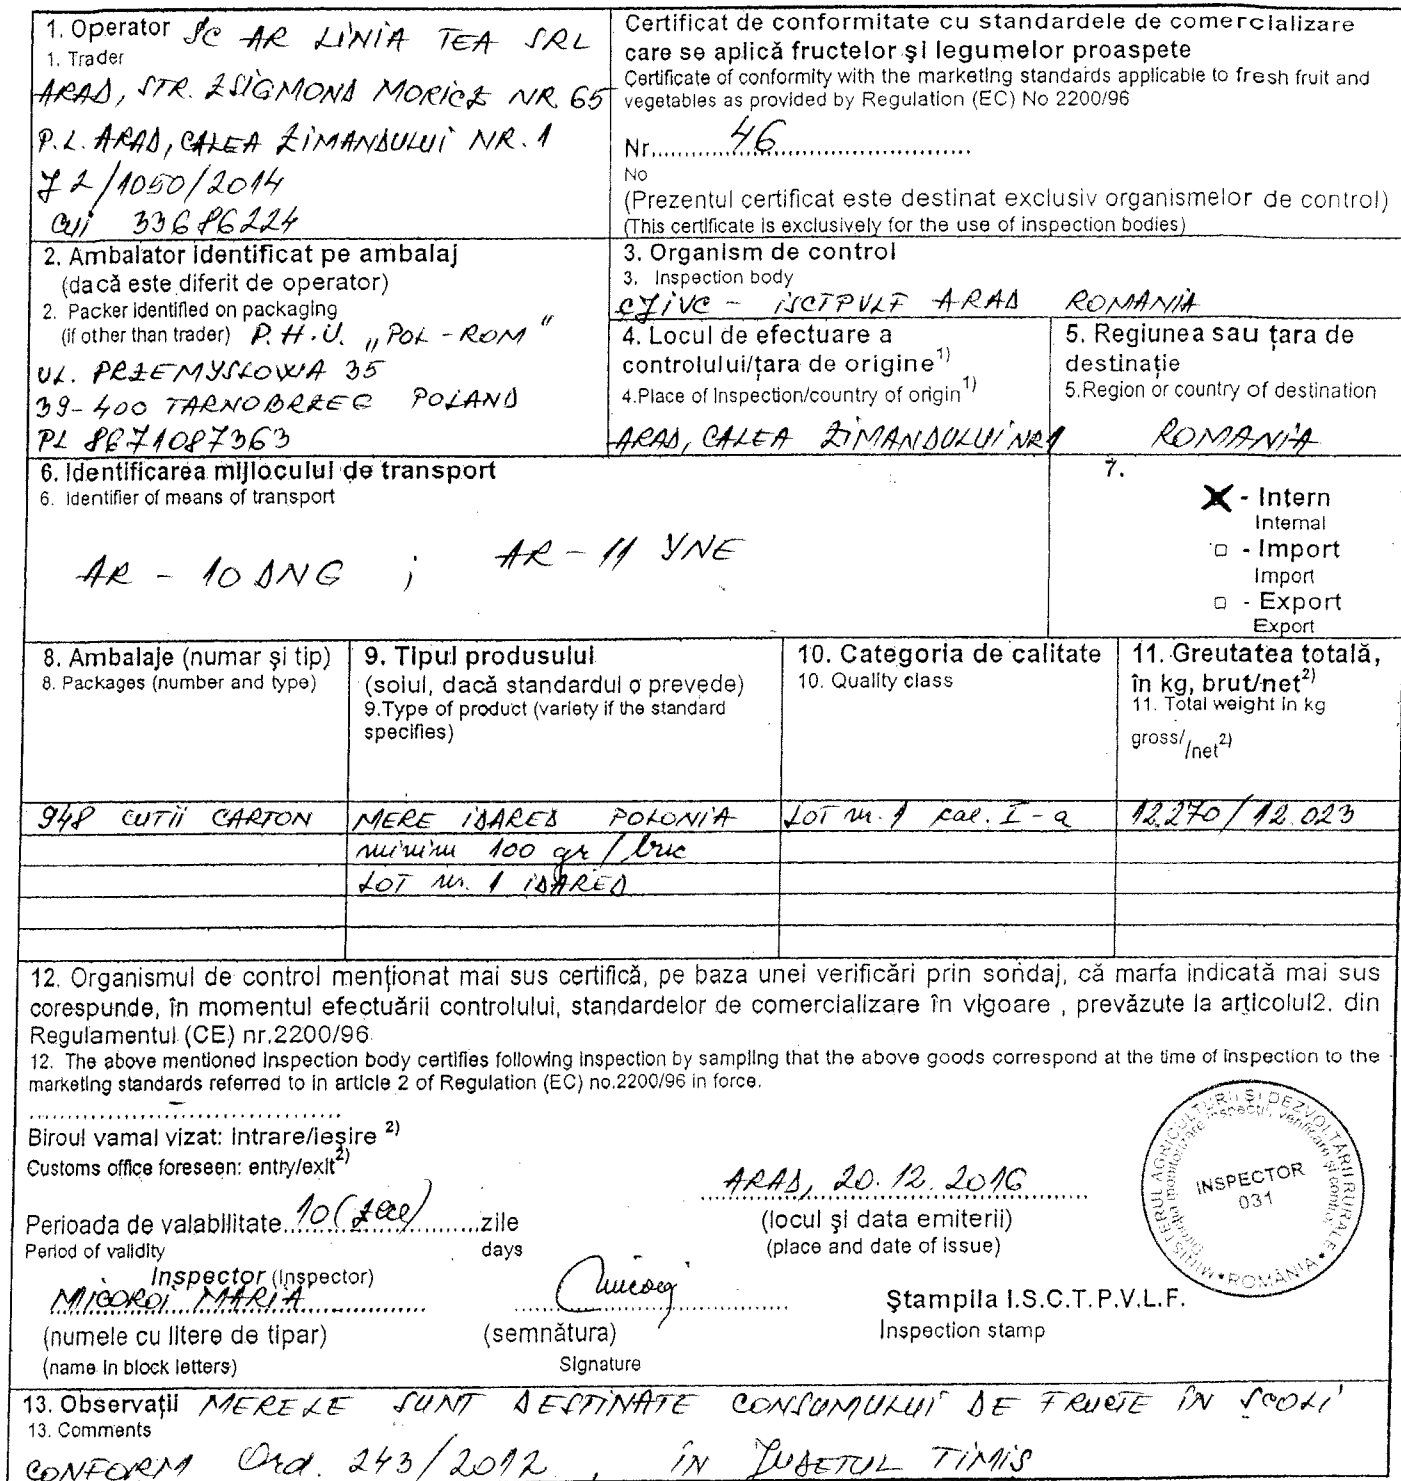 1. Operator SC AR LINIA TEA SRL
1. Trader
ARAD, STR. ZSIGMOND MORICZ NR. 65
P.L. ARAD, CALEA ZIMANDULUI NR. 1
J 2/1050/2014
CUI 33686224
Certificat de conformitate cu standardele de comercializare
care se aplică fructelor şi legumelor proaspete
Certificate of conformity with the marketing standards applicable to fresh fruit and
vegetables as provided by Regulation (EC) No 2200/96
Nr. 46
No
(Prezentul certificat este destinat exclusiv organismelor de control)
(This certificate is exclusively for the use of inspection bodies)
2. Ambalator identificat pe ambalaj
(dacă este diferit de operator)
2. Packer identified on packaging
(if other than trader) P.H.U. „POL-ROM"
UL. PRZEMYSLOWA 35
39-400 TARNOBRZEG POLAND
PL 8671087363
3. Organism de control
3. Inspection body
CJIVC - ISCTPVLF ARAD ROMANIA
4. Locul de efectuare a
controlului/ţara de origine1)
4.Place of Inspection/country of origin1)
ARAD, CALEA ZIMANDULUI NR 1
5. Regiunea sau ţara de
destinaţie
5.Region or country of destination
ROMANIA
6. Identificarea mijlocului de transport
6. Identifier of means of transport
AR - 10 DNG ; AR - 11 YNE
7.
X - Intern
Internal
□ - Import
Import
□ - Export
Export
8. Ambalaje (numar şi tip)
8. Packages (number and type)
9. Tipul produsului
(soiul, dacă standardul o prevede)
9.Type of product (variety if the standard
specifies)
10. Categoria de calitate
10. Quality class
11. Greutatea totală,
în kg, brut/net2)
11. Total weight in kg
gross/ /net2)
948 CUTII CARTON MERE IDARED POLONIA LOT nr. 1 cal. I-a 12.270/12.023
minim 100 gr/buc
LOT nr. 1 IDARED
12. Organismul de control menţionat mai sus certifică, pe baza unei verificări prin sondaj, că marfa indicată mai sus
corespunde, în momentul efectuării controlului, standardelor de comercializare în vigoare , prevăzute la articolul2. din
Regulamentul (CE) nr.2200/96
12. The above mentioned inspection body certifies following inspection by sampling that the above goods correspond at the time of inspection to the
marketing standards referred to in article 2 of Regulation (EC) no.2200/96 in force.
Biroul vamal vizat: intrare/ieşire 2)
Customs office foreseen: entry/exit2)
ARAD, 20.12.2016
(locul şi data emiterii)
(place and date of issue)
Perioada de valabilitate 10(zece) zile
Period of validity days
Inspector (Inspector)
MICOROI MARIA
(numele cu litere de tipar)
(name in block letters)
(semnătura)
Signature
Ştampila I.S.C.T.P.V.L.F.
Inspection stamp
MINISTERUL AGRICULTURII ŞI DEZVOLTĂRII RURALE * ROMÂNIA *
Direcţia monitorizare inspecţii, verificare şi control
INSPECTOR
031
13. Observaţii MERELE SUNT DESTINATE CONSUMULUI DE FRUCTE IN SCOLI
13. Comments
CONFORM Ord. 243/2012 , IN JUDETUL TIMIS